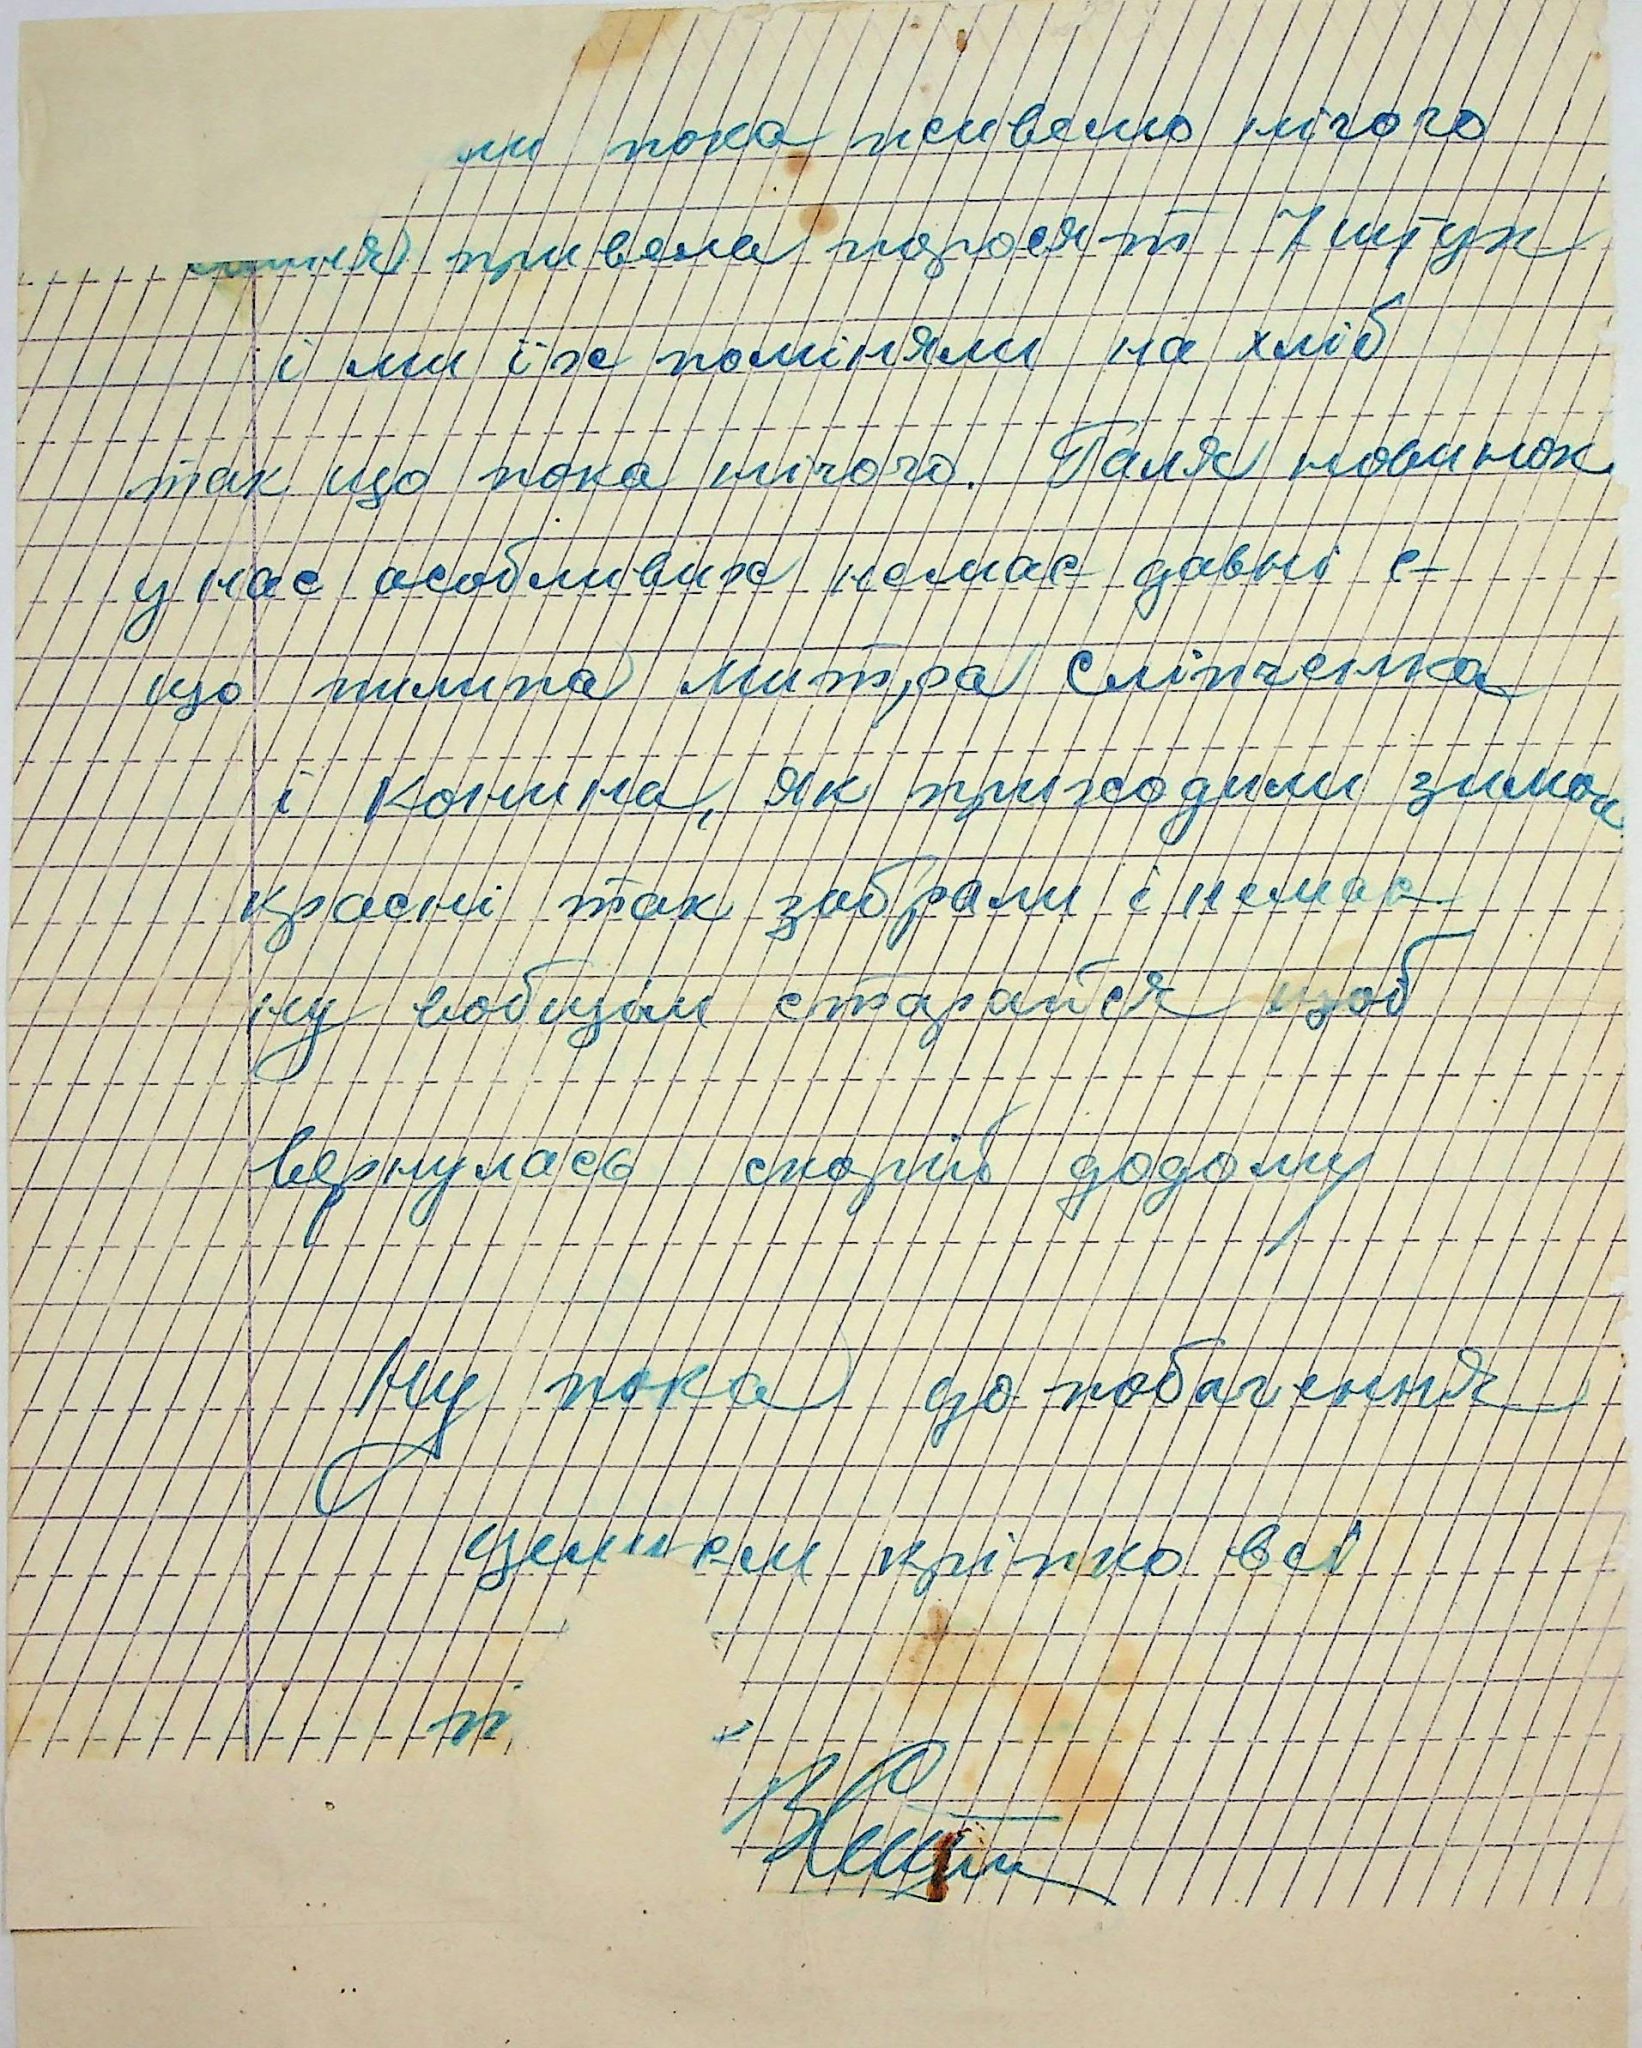 ми пока живемо нічого
привела поросят 7 штук
і ми їх поміняли на хліб
так що пока нічого. Галя новинок
у нас особливих немає давні є
що пилипа Митра Сліпченка
і Конина, як приходили зимой
красні так забрали і немає
ну вобщім старайся щоб
вернулась скорій додому
Ну пока до побачення
цілуєм кріпко всі